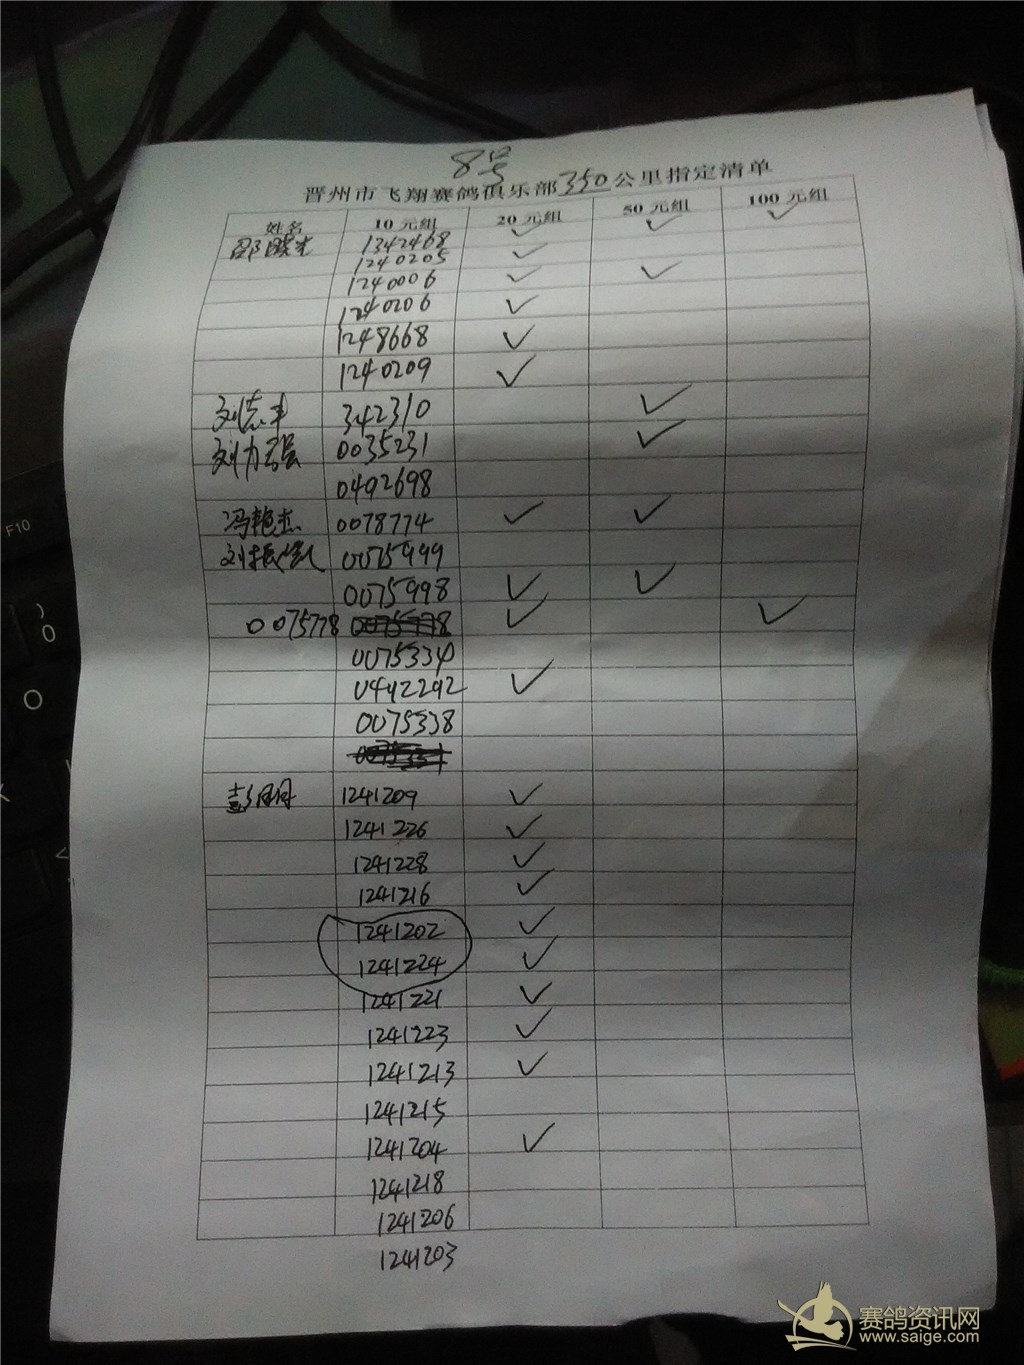 8号
晋州市飞翔赛鸽俱乐部350公里指定清单
姓名 10元组 20元组 50元组 100元组
邵曙光 1342468 ✓ ✓ ✓
1240205 ✓
1240006 ✓ ✓
1240206 ✓
1248668 ✓
1240209 ✓
刘志丰 342310 ✓
刘力强 0035231 ✓
0492698
冯艳杰 0078774 ✓ ✓
刘振 0075999
0075998 ✓ ✓
0075778 ✓ ✓
0075334
0442292 ✓
0075338
彭 1241209 ✓
1241226 ✓
1241228 ✓
1241216 ✓
1241202 ✓
1241224 ✓
1241221 ✓
1241223 ✓
1241213 ✓
1241215
1241204 ✓
1241218
1241206
1241203
F10
赛鸽资讯网
www.saige.com